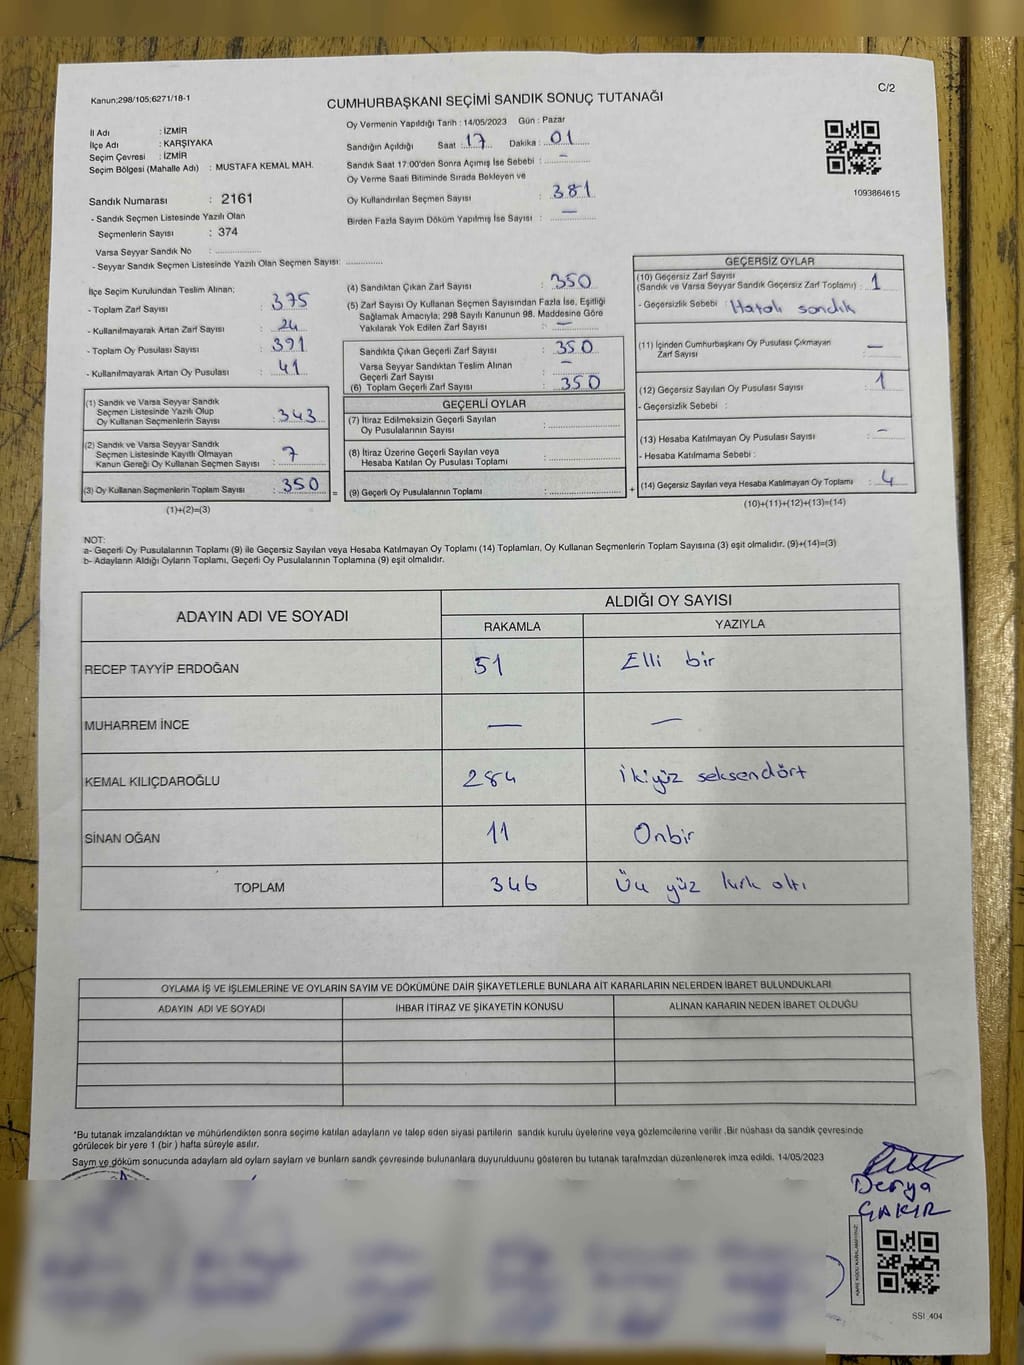 Kanun;298/105;6271/18-1
C/2
CUMHURBAŞKANI SEÇİMİ SANDIK SONUÇ TUTANAĞI
İl Adı : İZMİR
İlçe Adı : KARŞIYAKA
Seçim Çevresi : İZMİR
Seçim Bölgesi (Mahalle Adı) : MUSTAFA KEMAL MAH.
Sandık Numarası : 2161
- Sandık Seçmen Listesinde Yazılı Olan
Seçmenlerin Sayısı : 374
Varsa Seyyar Sandık No : ................
- Seyyar Sandık Seçmen Listesinde Yazılı Olan Seçmen Sayısı: .............
Oy Vermenin Yapıldığı Tarih : 14/05/2023 Gün : Pazar
Sandığın Açıldığı Saat : 17 Dakika : 01
Sandık Saat 17:00'den Sonra Açımış İse Sebebi : —
Oy Verme Saati Bitiminde Sırada Bekleyen ve
Oy Kullandırılan Seçmen Sayısı : 381
Birden Fazla Sayım Döküm Yapılmış İse Sayısı : —
1093864615
İlçe Seçim Kurulundan Teslim Alınan;
- Toplam Zarf Sayısı : 375
- Kullanılmayarak Artan Zarf Sayısı : 24
- Toplam Oy Pusulası Sayısı : 391
- Kullanılmayarak Artan Oy Pusulası : 41
(1) Sandık ve Varsa Seyyar Sandık
Seçmen Listesinde Yazılı Olup
Oy Kullanan Seçmenlerin Sayısı : 343
(2) Sandık ve Varsa Seyyar Sandık
Seçmen Listesinde Kayıtlı Olmayan
Kanun Gereği Oy Kullanan Seçmen Sayısı : 7
(3) Oy Kullanan Seçmenlerin Toplam Sayısı : 350
(1)+(2)=(3)
(4) Sandıktan Çıkan Zarf Sayısı : 350
(5) Zarf Sayısı Oy Kullanan Seçmen Sayısından Fazla İse, Eşitliği
Sağlamak Amacıyla; 298 Sayılı Kanunun 98. Maddesine Göre
Yakılarak Yok Edilen Zarf Sayısı : —
Sandıkta Çıkan Geçerli Zarf Sayısı : 350
Varsa Seyyar Sandıktan Teslim Alınan
Geçerli Zarf Sayısı : —
(6) Toplam Geçerli Zarf Sayısı : 350
GEÇERLİ OYLAR
(7) İtiraz Edilmeksizin Geçerli Sayılan
Oy Pusulalarının Sayısı : ................
(8) İtiraz Üzerine Geçerli Sayılan veya
Hesaba Katılan Oy Pusulası Toplamı : ................
(9) Geçerli Oy Pusulalarının Toplamı : ................
=
+
GEÇERSİZ OYLAR
(10) Geçersiz Zarf Sayısı
(Sandık ve Varsa Seyyar Sandık Geçersiz Zarf Toplamı) : 1
- Geçersizlik Sebebi : Hatalı sandık
(11) İçinden Cumhurbaşkanı Oy Pusulası Çıkmayan
Zarf Sayısı : —
(12) Geçersiz Sayılan Oy Pusulası Sayısı : 1
- Geçersizlik Sebebi :
(13) Hesaba Katılmayan Oy Pusulası Sayısı : —
- Hesaba Katılmama Sebebi :
(14) Geçersiz Sayılan veya Hesaba Katılmayan Oy Toplamı : 4
(10)+(11)+(12)+(13)=(14)
NOT:
a- Geçerli Oy Pusulalarının Toplamı (9) ile Geçersiz Sayılan veya Hesaba Katılmayan Oy Toplamı (14) Toplamları, Oy Kullanan Seçmenlerin Toplam Sayısına (3) eşit olmalıdır. (9)+(14)=(3)
b- Adayların Aldığı Oyların Toplamı, Geçerli Oy Pusulalarının Toplamına (9) eşit olmalıdır.
ADAYIN ADI VE SOYADI
ALDIĞI OY SAYISI
RAKAMLA YAZIYLA
RECEP TAYYİP ERDOĞAN 51 Elli bir
MUHARREM İNCE — —
KEMAL KILIÇDAROĞLU 284 İkiyüz seksendört
SİNAN OĞAN 11 Onbir
TOPLAM 346 Üç yüz kırk altı
OYLAMA İŞ VE İŞLEMLERİNE VE OYLARIN SAYIM VE DÖKÜMÜNE DAİR ŞİKAYETLERLE BUNLARA AİT KARARLARIN NELERDEN İBARET BULUNDUKLARI
ADAYIN ADI VE SOYADI İHBAR İTİRAZ VE ŞİKAYETİN KONUSU ALINAN KARARIN NEDEN İBARET OLDUĞU
*Bu tutanak imzalandıktan ve mühürlendikten sonra seçime katılan adayların ve talep eden siyasi partilerin sandık kurulu üyelerine veya gözlemcilerine verilir .Bir nüshası da sandık çevresinde
görülecek bir yere 1 (bir ) hafta süreyle asılır.
Sayım ve döküm sonucunda adayların ald oyların sayların ve bunların sandk çevresinde bulunanlara duyurulduunu gösteren bu tutanak tarafımzdan düzenlenerek imza edildi. 14/05/2023
Derya
ÇAKIR
SSI_404